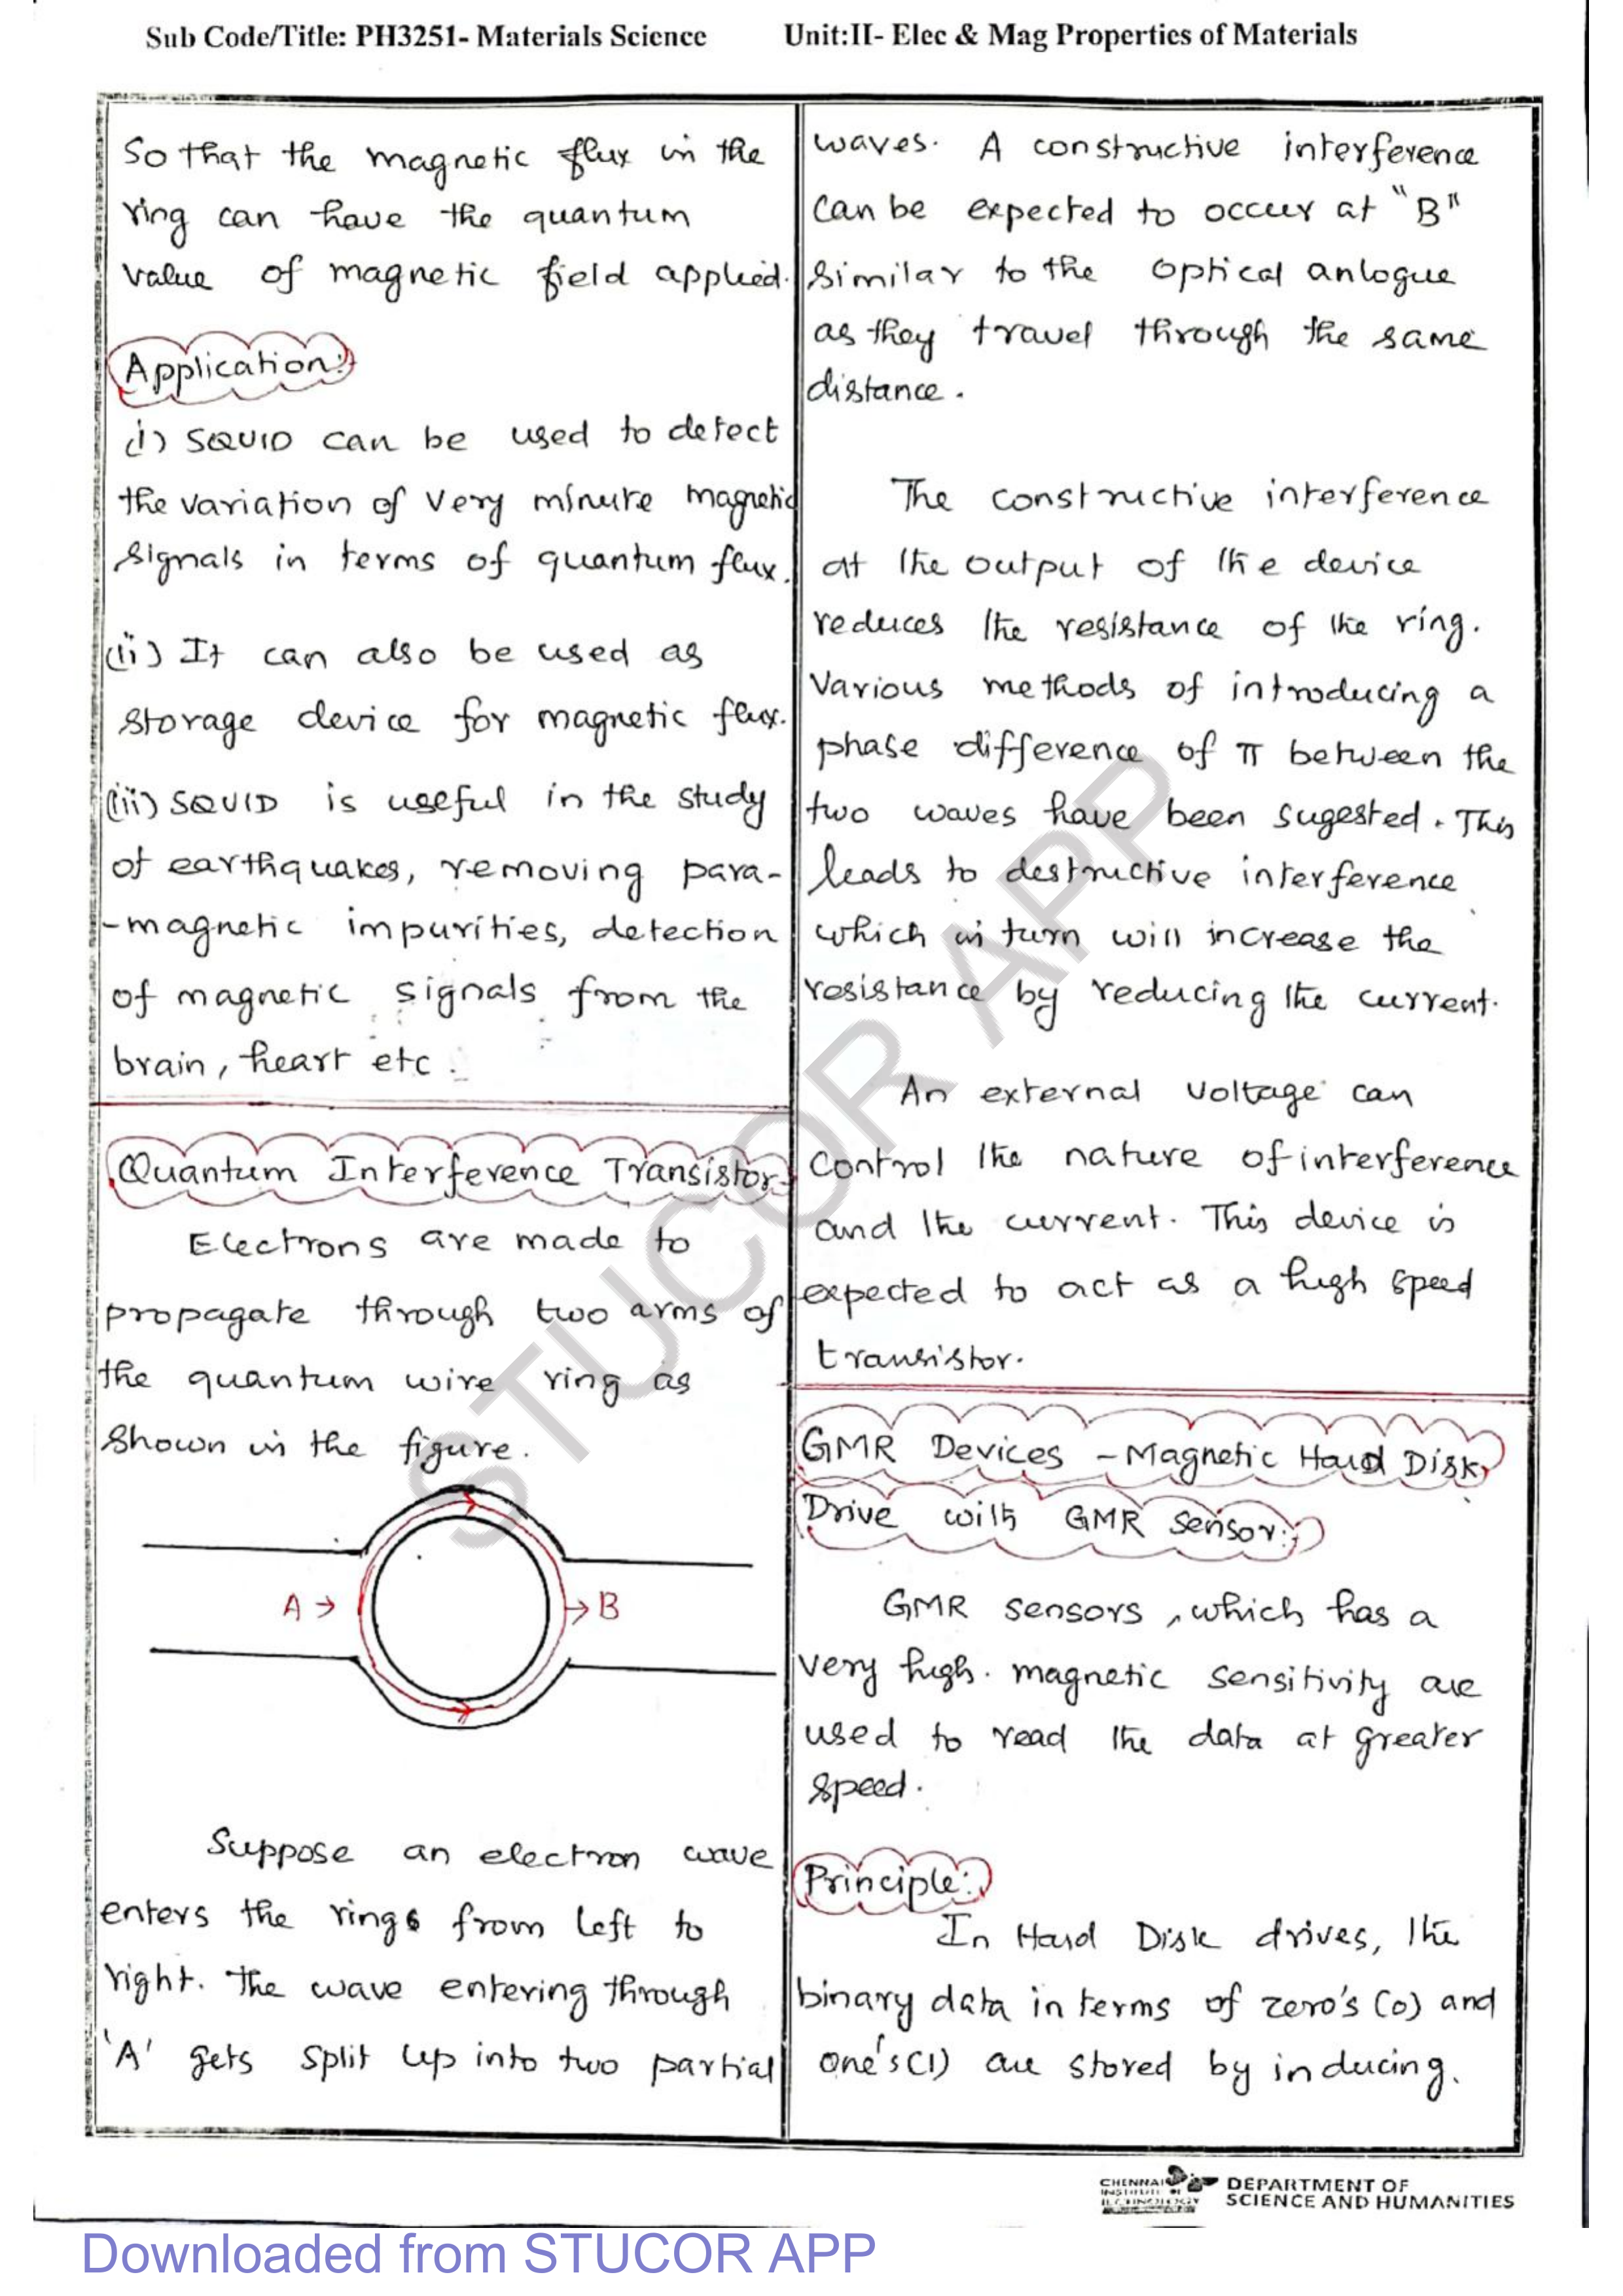 Sub Code/Title: PH3251- Materials Science Unit:II- Elec & Mag Properties of Materials
So that the magnetic flux in the
ring can have the quantum
value of magnetic field applied.
Application:
(i) SQUID can be used to detect
the variation of very minute magnetic
signals in terms of quantum flux.
(ii) It can also be used as
storage device for magnetic flux.
(iii) SQUID is useful in the study
of earthquakes, removing para-
-magnetic impurities, detection
of magnetic signals from the
brain, heart etc.
Quantum Interference Transistor
Electrons are made to
propagate through two arms of
the quantum wire ring as
shown in the figure.
A → → B
Suppose an electron wave
enters the rings from left to
right. The wave entering through
'A' gets split up into two partial
waves. A constructive interference
can be expected to occur at "B"
similar to the optical anlogue
as they travel through the same
distance.
The constructive interference
at the output of the device
reduces the resistance of the ring.
Various methods of introducing a
phase difference of π between the
two waves have been sugested. This
leads to destructive interference
which in turn will increase the
resistance by reducing the current.
An external voltage can
control the nature of interference
and the current. This device is
expected to act as a high speed
transistor.
GMR Devices - Magnetic Hard Disk
Drive with GMR Sensor:
GMR sensors, which has a
very high. magnetic sensitivity are
used to read the data at greater
speed.
Principle:
In Hard Disk drives, the
binary data in terms of zero's (0) and
one's (1) are stored by inducing.
CHENNAI
INSTITUTE OF
TECHNOLOGY
DEPARTMENT OF
SCIENCE AND HUMANITIES
STUCOR APP
Downloaded from STUCOR APP